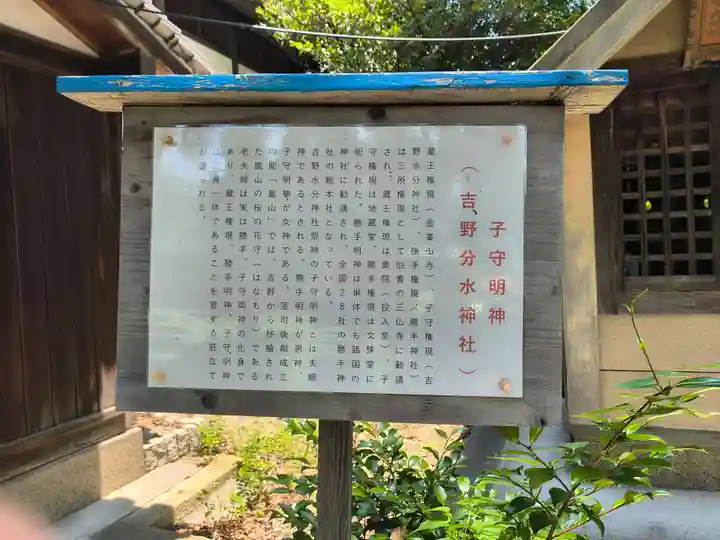 子守明神
(吉野分水神社)
蔵王権現(金峯山寺)、子守権現(吉
野水分神社)、勝手権現(勝手神社)
は三所権現として伯耆の三仏寺に勧請
され、蔵王権現は奥院(投入堂)、子
守権現は地蔵堂、勝手権現は文殊堂に
祀られた。勝手明神は単体でも諸国の
神社に勧請され、全国28社の勝手神
社の総本社となっている。
吉野水分神社祭神の子守明神とは夫婦
神であるとされる。勝手明神が男神、
子守明神が女神である。室町後期成立
の能「嵐山」では、吉野から移植され
た嵐山の桜の花守(はなもり)である
老夫婦は実は勝手、子守両神の化身で
あり、蔵王権現、勝手明神、子守明神
は三身一体であることを宣する筋立て
が語られる。